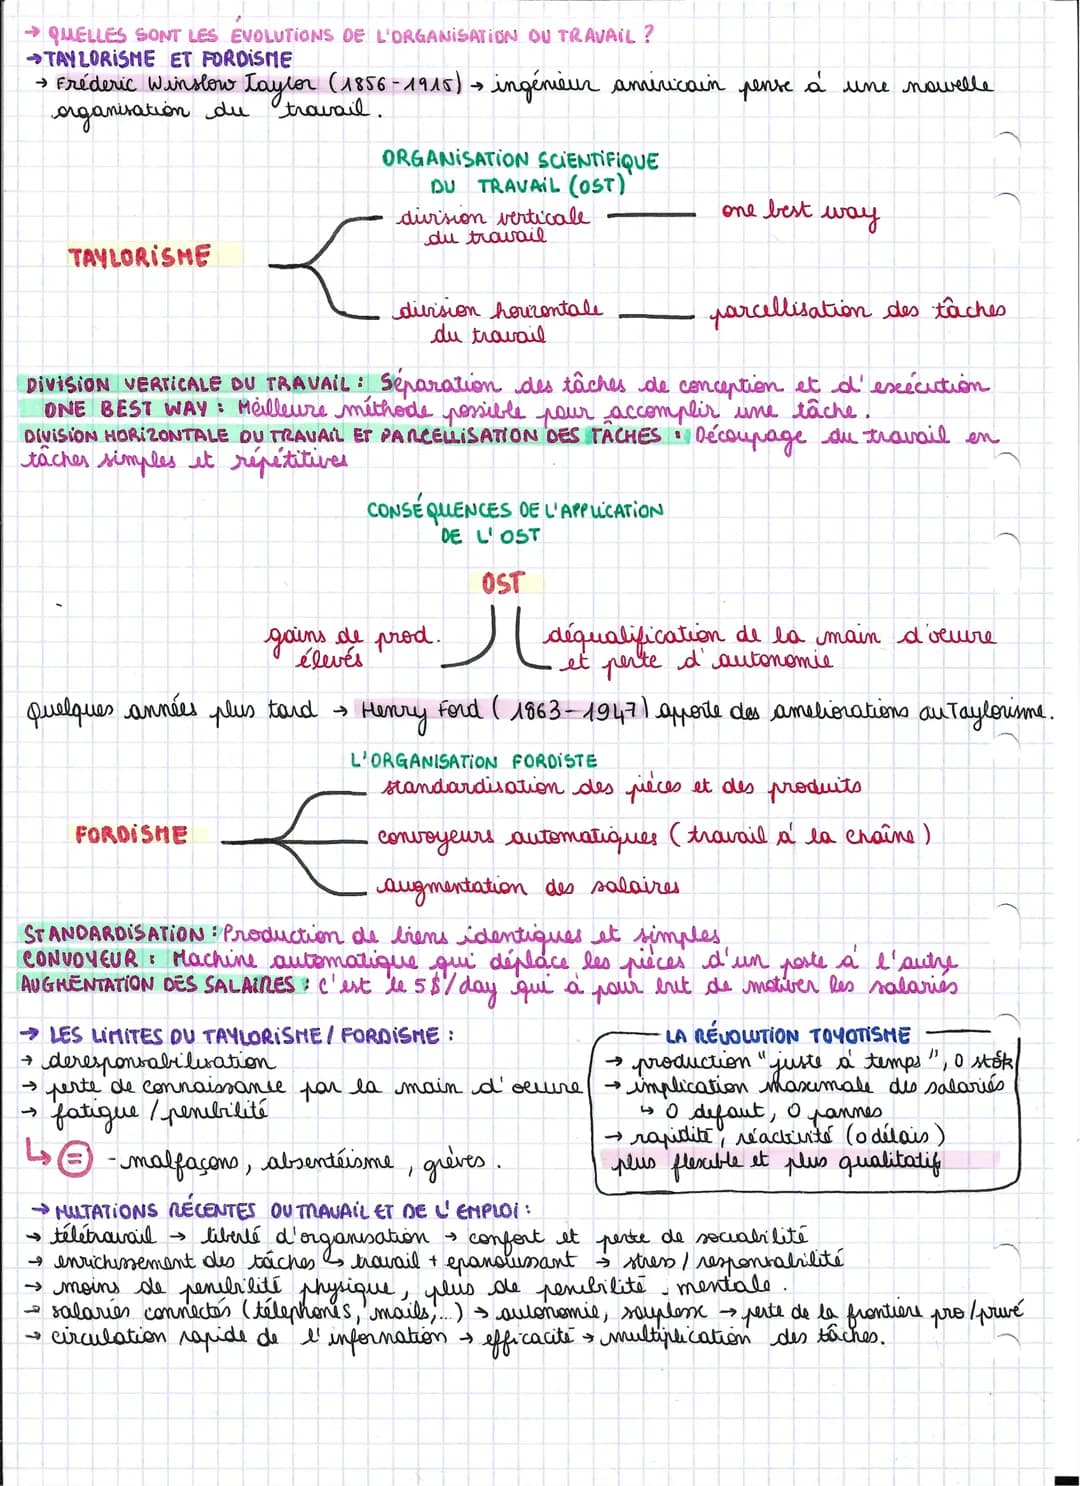 → QUELLES SONT LES ÉVOLUTIONS DE L'ORGANISATION DU TRAVAIL ?
→ TAYLORISME ET FORDISME
→ Fréderic Winslow Taylor (1856-1915) → ingénieur aminicain pense à une nouvelle
organisation du travail.
ORGANISATION SCIENTIFIQUE
DU TRAVAIL (OST)
division verticale
du travail
one best way
TAYLORISME
division horizontale
du travail
parcellisation des tâches
DIVISION VERTICALE DU TRAVAIL : Séparation des tâches de conception et d'escécution
ONE BEST WAY : Meilleure méthode possible pour accomplir une tâche.
DIVISION HORIZONTALE DU TRAVAIL ET PARCELLISATION DES TÂCHES : Découpage du travail en
tâches simples et répétitives
CONSÉQUENCES DE L'APPLICATION
DE L'OST
OST
gains de prod.
élevés
déqualification de la main d'oeuvre
et perte d'autonomie
Quelques années plus tard → Henry Ford (1863-1947) apporte des ameliorations au Taylorisme.
L'ORGANISATION FORDISTE
standardisation des pièces et des produits
FORDISME
convoyeurs automatiques (travail à la chaîne)
augmentation des salaires
STANDARDISATION : Production de biens identiques et simples
CONVOYEUR : Machine automatique qui déplace les pièces d'un poste à l'autre
AUGMENTATION DES SALAIRES : c'est le 5$/day qui à pour but de motiver les salariés
→ LES LIMITES DU TAYLORISME / FORDISME :
→ deresponsabilisation
→ perte de connaissance par la main d'oeuvre
→ fatigue / penibilité
↳ = - malfaçons, absentéisme, grèves.
LA RÉVOLUTION TOYOTISME
→ production "juste à temps", 0 stok
→ implication maximale des salariés
↳ 0 defaut, 0 pannes
→ rapidité, réactivité (0 délais)
plus flexible et plus qualitatif
→ MUTATIONS RÉCENTES DU TRAVAIL ET DE L'EMPLOI :
→ télétravail → liberté d'organisation → confort et perte de sociabilité
→ enrichissement des tâches ↳ travail + epanouissant → stress / responsabilité
→ moins de penibilité physique, plus de penibilité mentale.
→ salariés connectés (télephones, mails,...) → autonomie, souplesse → perte de la frontiere pro/privé
→ circulation rapide de l'information → efficacité → multiplication des tâches.